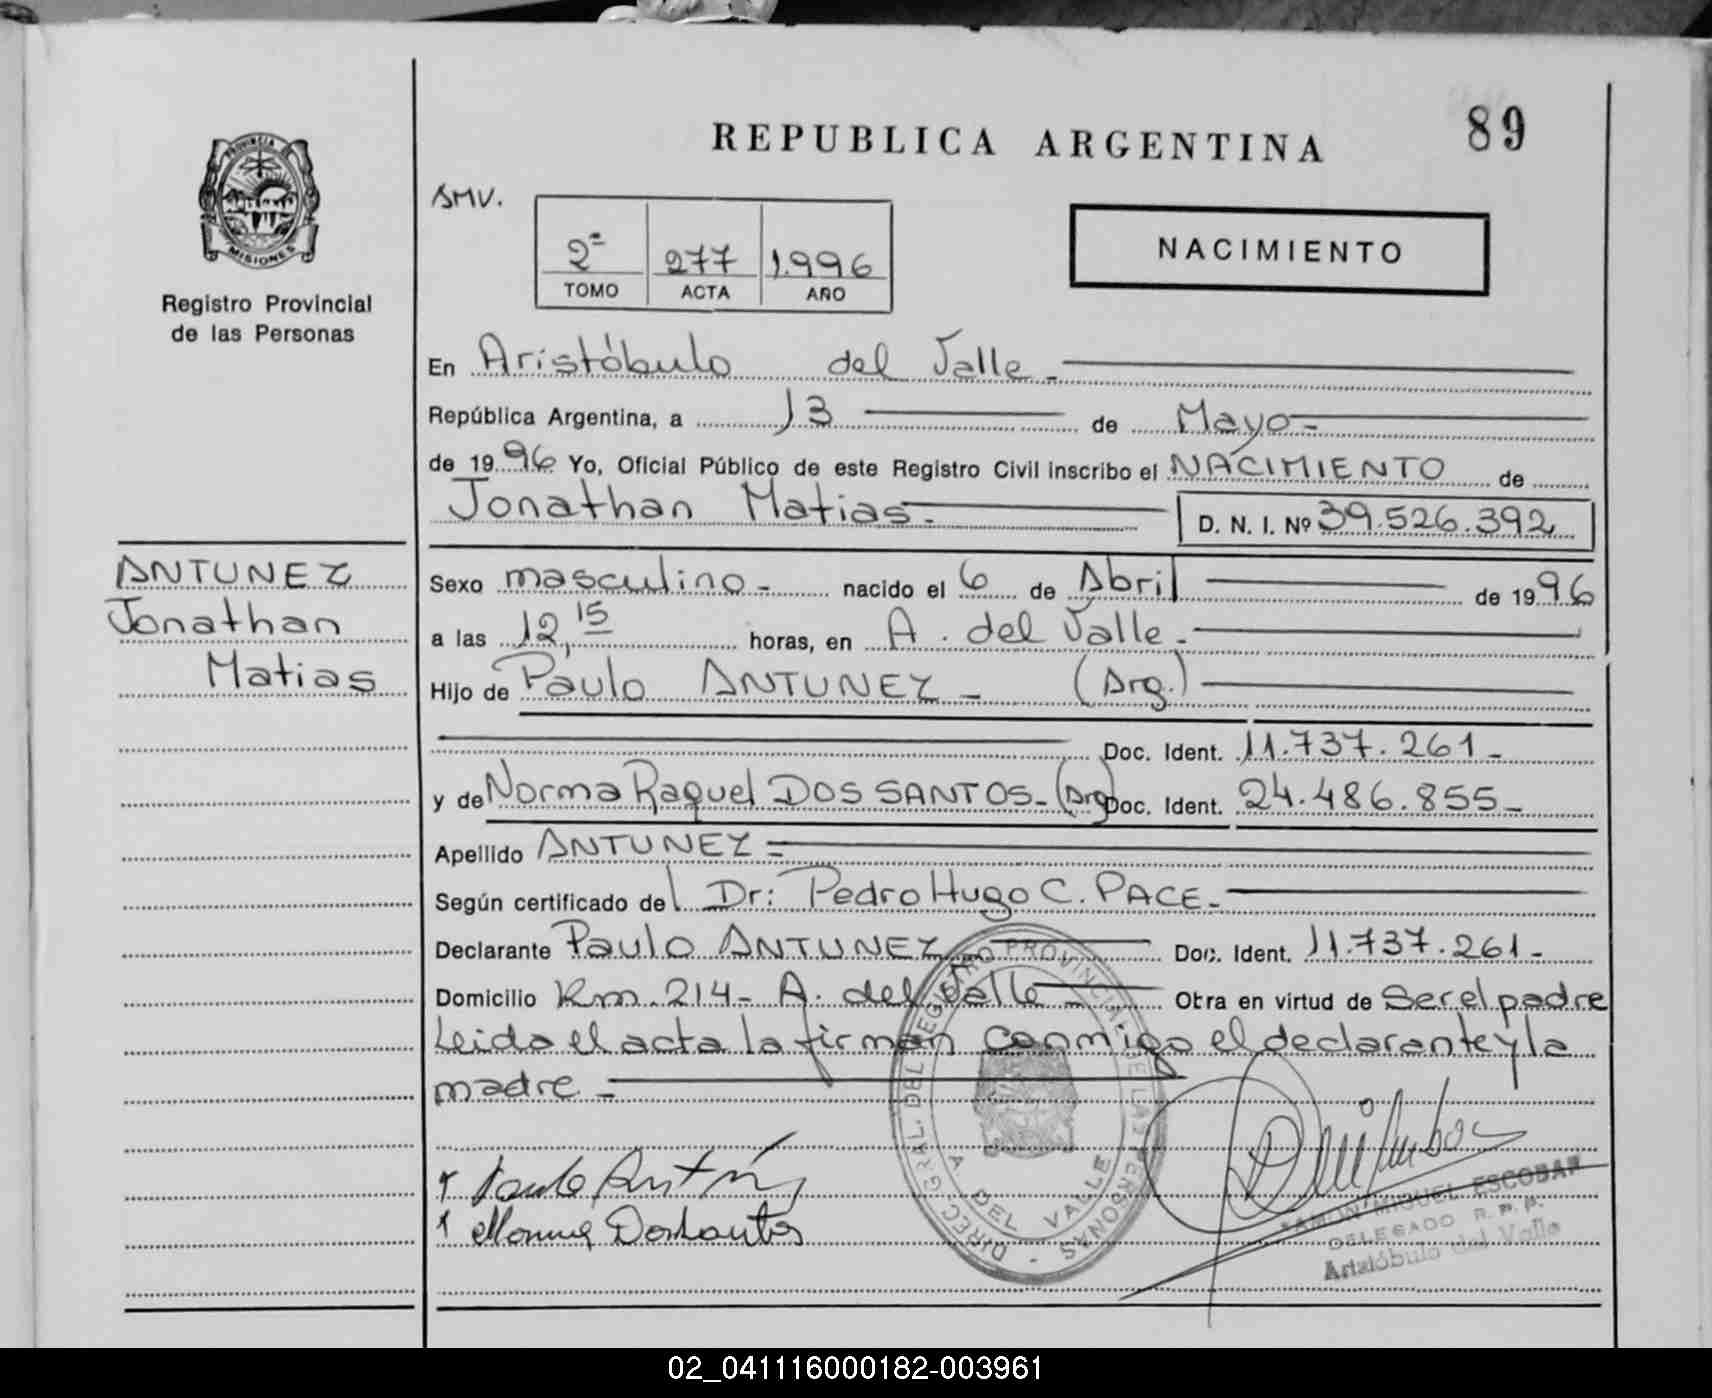 REPUBLICA ARGENTINA
89
PROVINCIA DE
MISIONES
Registro Provincial
de las Personas
SMV.
2ª 277 1.996
TOMO ACTA AÑO
NACIMIENTO
En Aristóbulo del Valle.
República Argentina, a 13 de Mayo
de 1996 Yo, Oficial Público de este Registro Civil inscribo el NACIMIENTO de
Jonathan Matias.
D. N. I. Nº 39.526.392
ANTUNEZ
Jonathan
Matias
Sexo masculino nacido el 6 de Abril de 1996
a las 12,15 horas, en A. del Valle.
Hijo de Paulo ANTUNEZ (Arg.)
Doc. Ident. 11.737.261
y de Norma Raquel DOS SANTOS (Arg) Doc. Ident. 24.486.855
Apellido ANTUNEZ
Según certificado del Dr: Pedro Hugo C. PACE
Declarante Paulo ANTUNEZ Doc. Ident. 11.737.261
Domicilio Km. 214 - A. del Valle Obra en virtud de Ser el padre
Leida el acta la firman conmigo el declarante y la
madre
DIREC. GRAL. DEL REGISTRO PROVINCIAL DE LAS PERSONAS
A DEL VALLE
RAMON MIGUEL ESCOBAR
DELEGADO R. P. P.
Aristóbulo del Valle
02_041116000182-003961